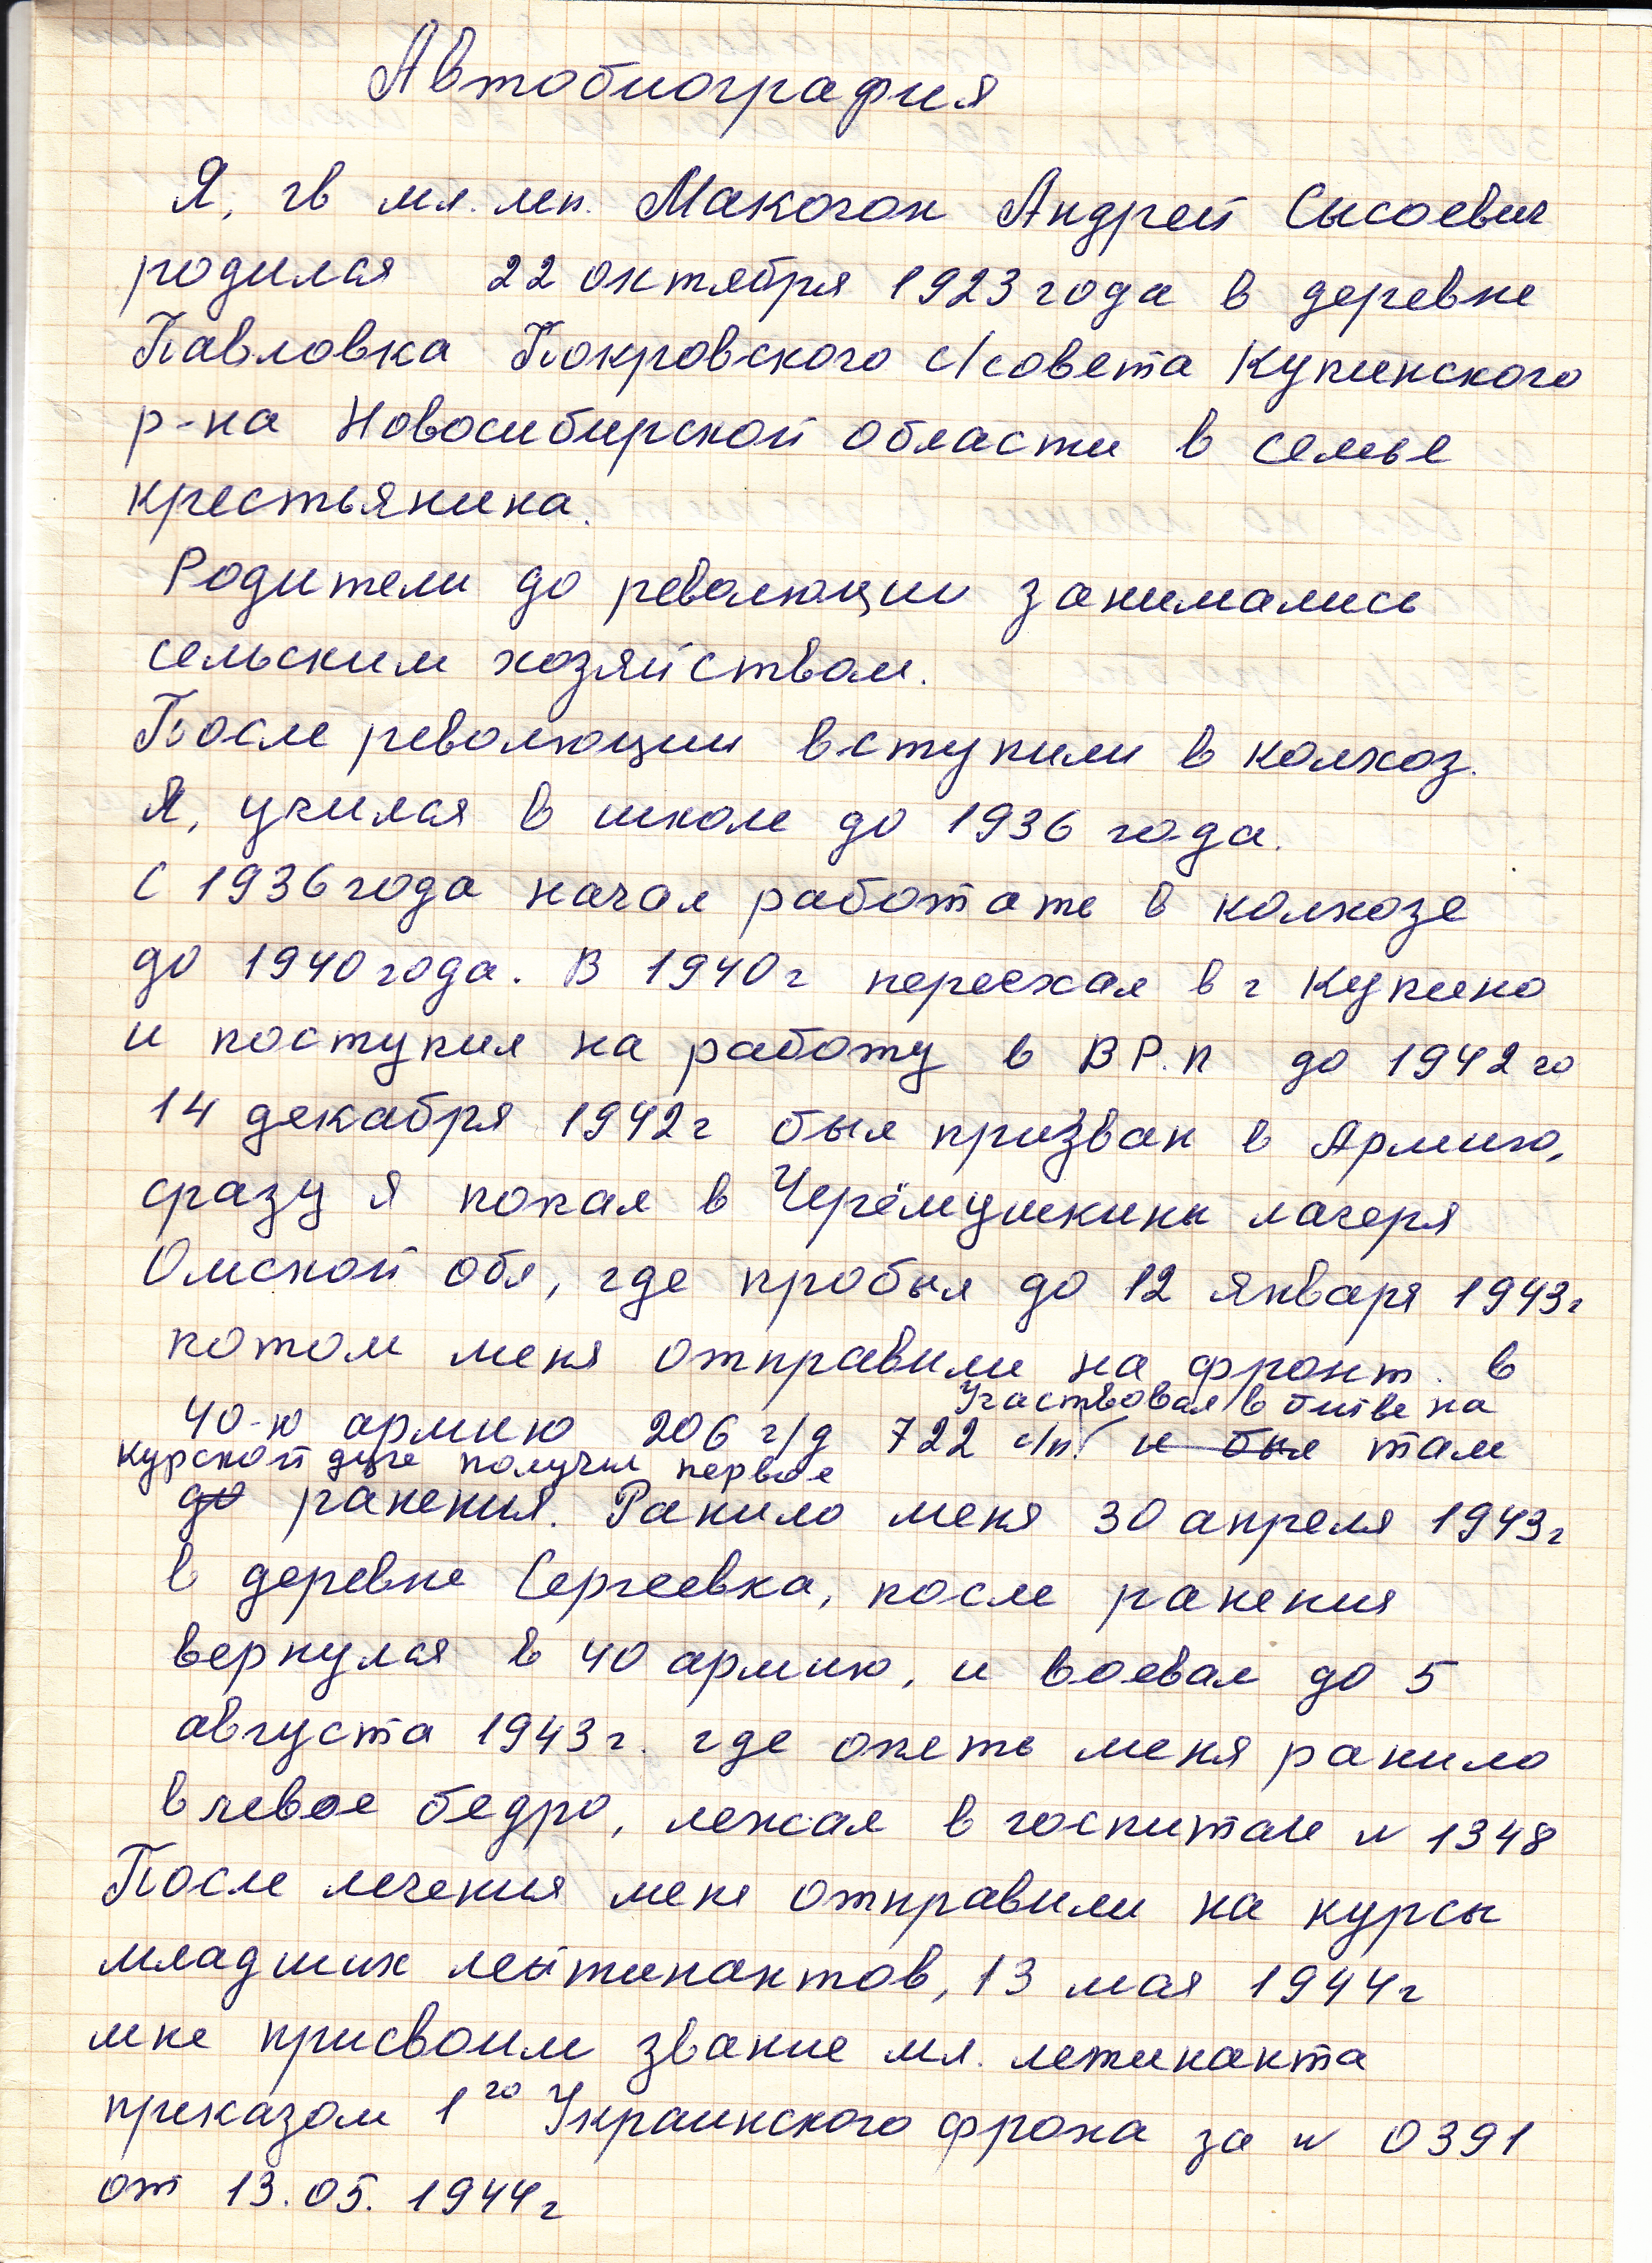 Автобиография
Я, гв мл. леп. Макогон Андрей Сысоевич
родился 22 октября 1923 года в деревне
Павловка Покровского с/совета Купинского
р-на Новосибирской области в семье
крестьянина.
Родители до революции занимались
сельским хозяйством.
После революции вступили в колхоз.
Я, учился в школе до 1936 года.
С 1936 года начал работать в колхозе
до 1940 года. В 1940 г переехал в г Купино
и поступил на работу в ВР.П до 1942 го
14 декабря 1942 г был призван в Армию,
сразу я попал в Черёмушкины лагеря
Омской обл, где пробыл до 12 января 1943 г
потом меня отправили на фронт. в
Участвовал в битве на
40-ю армию 206 г/д 722 с/п. и был там
курской дуге получил первое
до ранения. Ранило меня 30 апреля 1943 г
в деревне Сергеевка, после ранения
вернулся в 40 армию, и воевал до 5
августа 1943 г. где опеть меня ранило
в левое бедро, лежал в госпитале N 1348
После лечения меня отправили на курсы
младших лейтинантов, 13 мая 1944 г
мне присвоили звание мл. летинанта
приказом 1го Украинского фрона за N 0391
от 13.05.1944 г